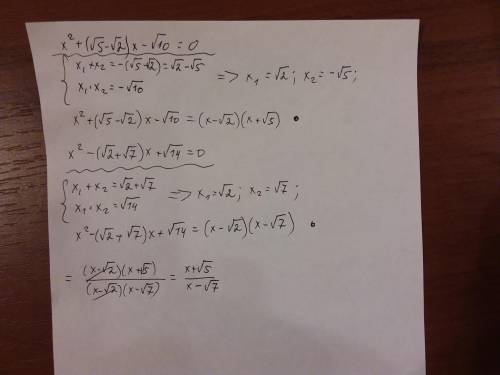 x² + (√5 - √2)x - √10 = 0
{ x₁ + x₂ = -(√5 + √2) = √2 - √5
x₁ · x₂ = -√10 => x₁ = √2 ; x₂ = -√5 ;
x² + (√5 - √2)x - √10 = (x - √2)(x + √5) •
x² - (√2 + √7)x + √14 = 0
{ x₁ + x₂ = √2 + √7
x₁ · x₂ = √14 => x₁ = √2 ; x₂ = √7 ;
x² - (√2 + √7)x + √14 = (x - √2)(x - √7) •
= (x - √2)(x + √5) / (x - √2)(x - √7) = x + √5 / x - √7